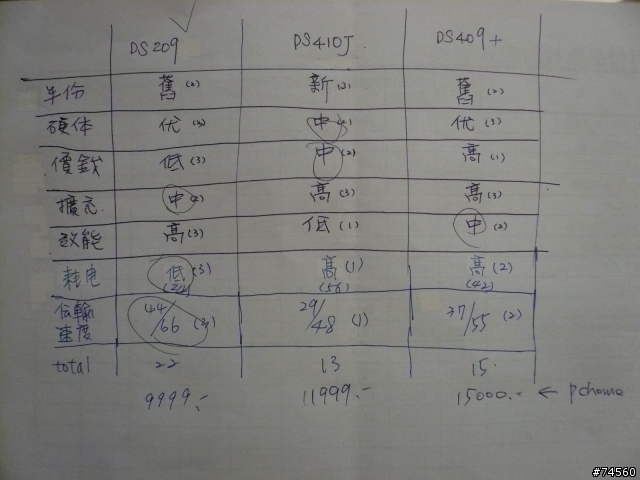 DS209 DS410J DS409+
年份 舊(2) 新(3) 舊(2)
硬体 优(3) 中(2) 优(3)
價錢 低(3) 中(2) 高(1)
擴充 中(2) 高(3) 高(3)
效能 高(3) 低(1) 中(2)
耗电 低(3) 高(1) 高(2)
(22) (56) (42)
伝輸速度 44/66 (3) 29/48 (1) 37/55 (2)
total 22 13 15
9999.- 11999.- 15000.- ← pchome
#74560